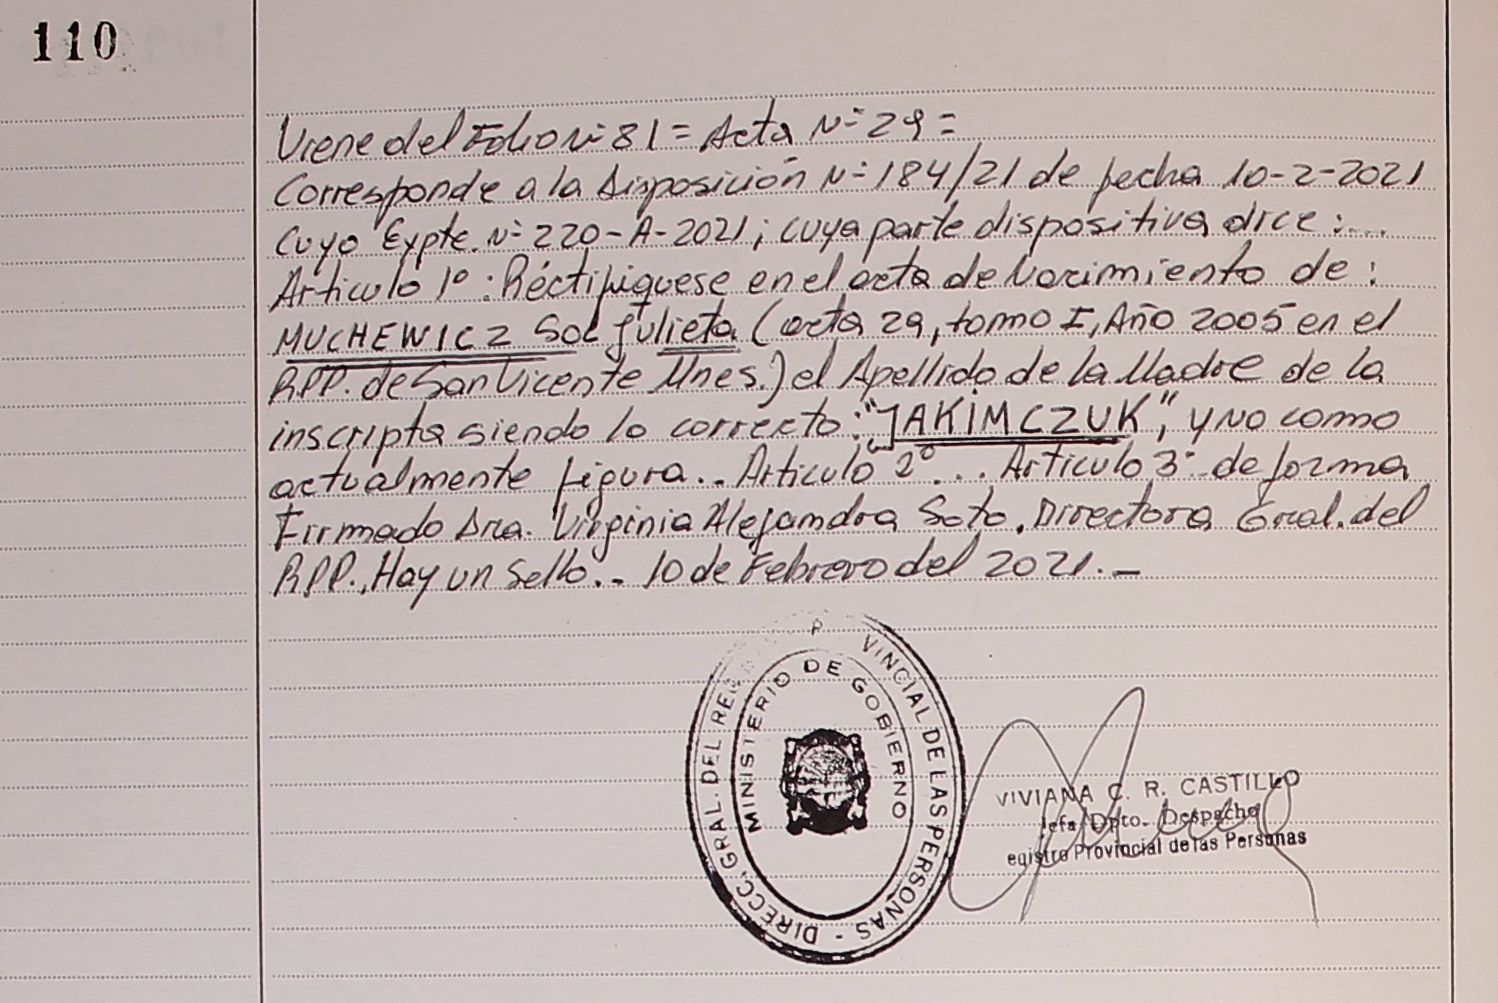 110
Viene del Folio Nº 81 = Acta Nº 29 =
Corresponde a la Disposición Nº 184/21 de fecha 10-2-2021
Cuyo Expte. Nº 220-A-2021; cuya parte dispositiva dice:...
Articulo 1º: Réctifiquese en el acta de Nacimiento de:
MUCHEWICZ SOL Julieta (acta 29, tomo I, Año 2005 en el
RPP. de San Vicente Mnes.) el Apellido de la Madre de la
inscripta siendo lo correcto: "JAKIMCZUK", y no como
actualmente figura.. Articulo 2º... Articulo 3º de forma
Firmado Dra. Virginia Alejandra Soto. Directora Gral. del
RPP. Hay un Sello.- 10 de Febrero del 2021.-
DIRECC. GRAL. DEL REG P VINCIAL DE LAS PERSONAS -
MINISTERIO DE GOBIERNO
VIVIANA C. R. CASTILLO
Jefa Dpto. Despacho
egistro Provincial de las Personas